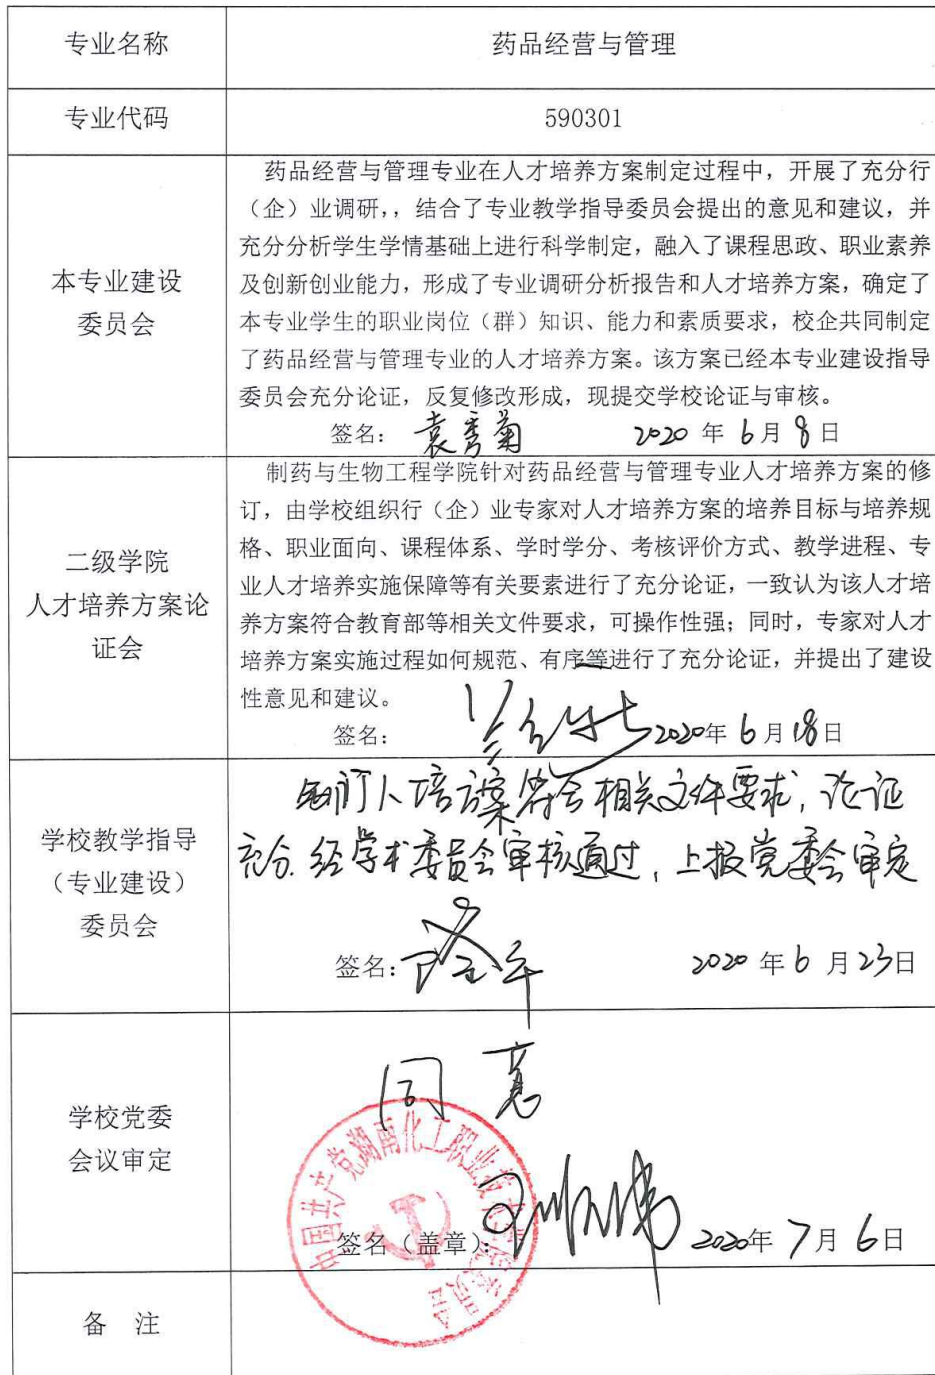 专业名称
药品经营与管理
专业代码
590301
本专业建设
委员会
药品经营与管理专业在人才培养方案制定过程中，开展了充分行
（企）业调研,，结合了专业教学指导委员会提出的意见和建议，并
充分分析学生学情基础上进行科学制定，融入了课程思政、职业素养
及创新创业能力，形成了专业调研分析报告和人才培养方案，确定了
本专业学生的职业岗位（群）知识、能力和素质要求，校企共同制定
了药品经营与管理专业的人才培养方案。该方案已经本专业建设指导
委员会充分论证，反复修改形成，现提交学校论证与审核。
签名： 袁秀菊 2020 年 6 月 8 日
二级学院
人才培养方案论
证会
制药与生物工程学院针对药品经营与管理专业人才培养方案的修
订，由学校组织行（企）业专家对人才培养方案的培养目标与培养规
格、职业面向、课程体系、学时学分、考核评价方式、教学进程、专
业人才培养实施保障等有关要素进行了充分论证，一致认为该人才培
养方案符合教育部等相关文件要求，可操作性强；同时，专家对人才
培养方案实施过程如何规范、有序等进行了充分论证，并提出了建设
性意见和建议。
签名： 2020年 6 月 18 日
学校教学指导
（专业建设）
委员会
人培方案符合相关文件要求，论证
充分.经学术委员会审核通过，上报党委会审定
签名： 2020 年 6 月 23日
学校党委
会议审定
同意
中国共产党湖南化工职业技术学院委员会
签名（盖章）： 2020年 7 月 6 日
备 注